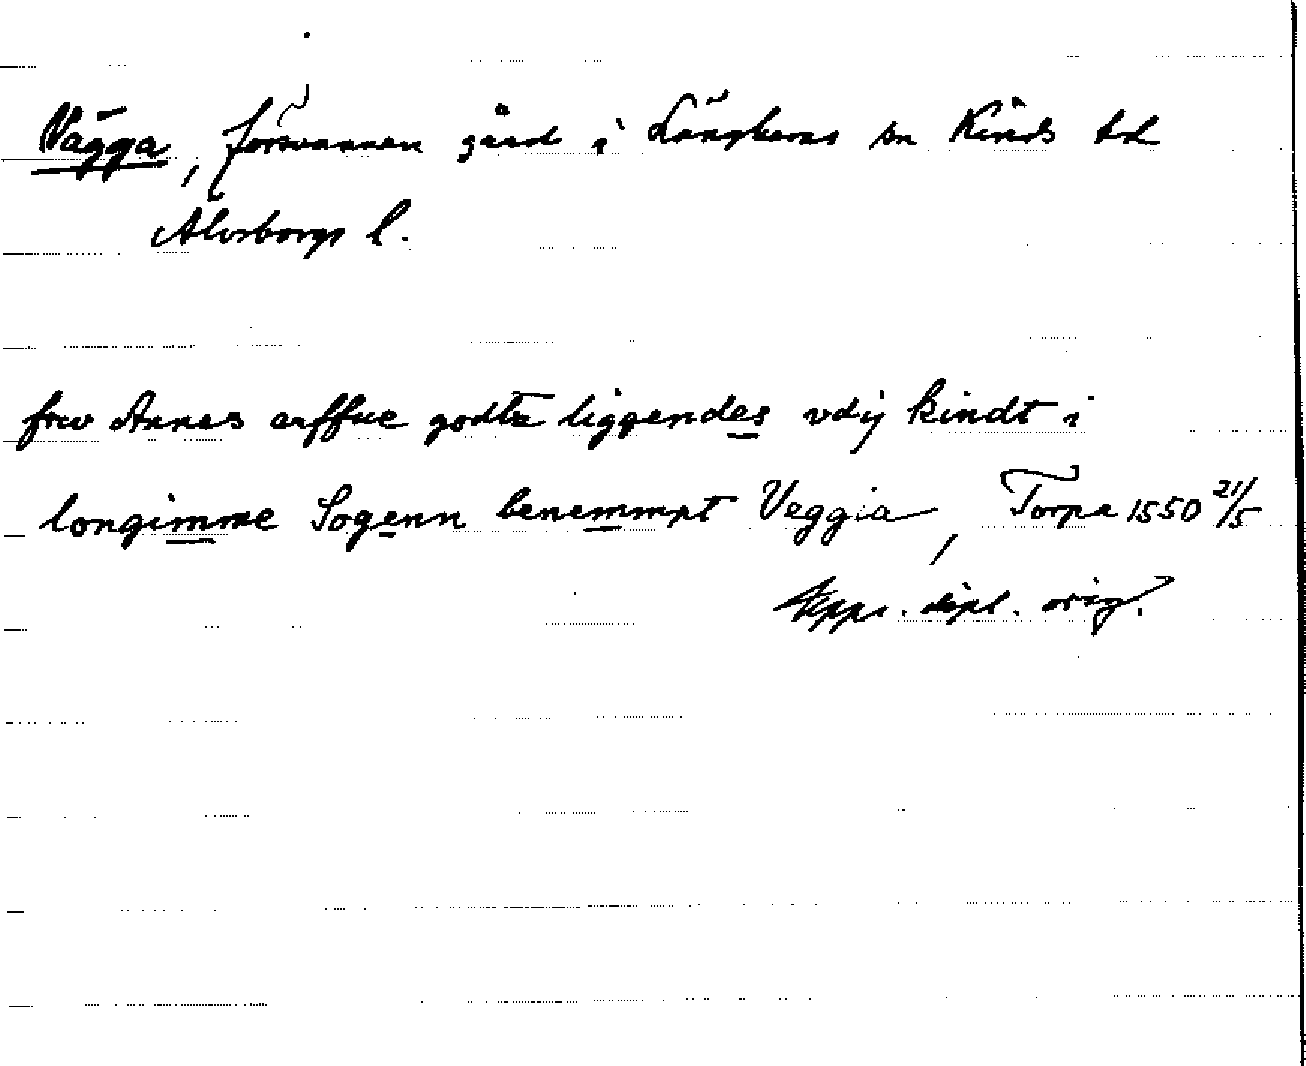 Vägga, försvunnen gård i Länghems sn Kinds hd
Älvsborgs l.
frw Annes arffue godtz liggendes vdij kindt i
longimme Sogenn benemmpt Veggia, Torpa 1550 21/5
Upps. dipl. orig.